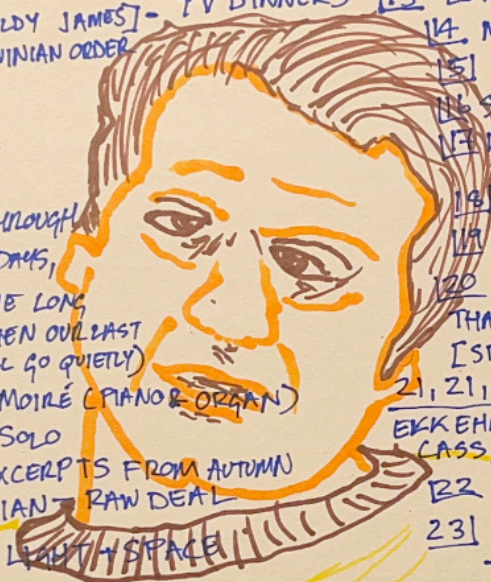 LDY JAMES] - TV DINNERS
VINIAN ORDER
HROUGH
DAYS,
E LONG
HEN OUR LAST
L GO QUIETLY)
MOIRÉ (PIANO & ORGAN)
SOLO
XCERPTS FROM AUTUMN
IAN - RAW DEAL
LIGHT + SPACE
14.
15]
16 S
17
18
19
20
THA
[S
21, 21,
EKKEH
CASS
22
23]